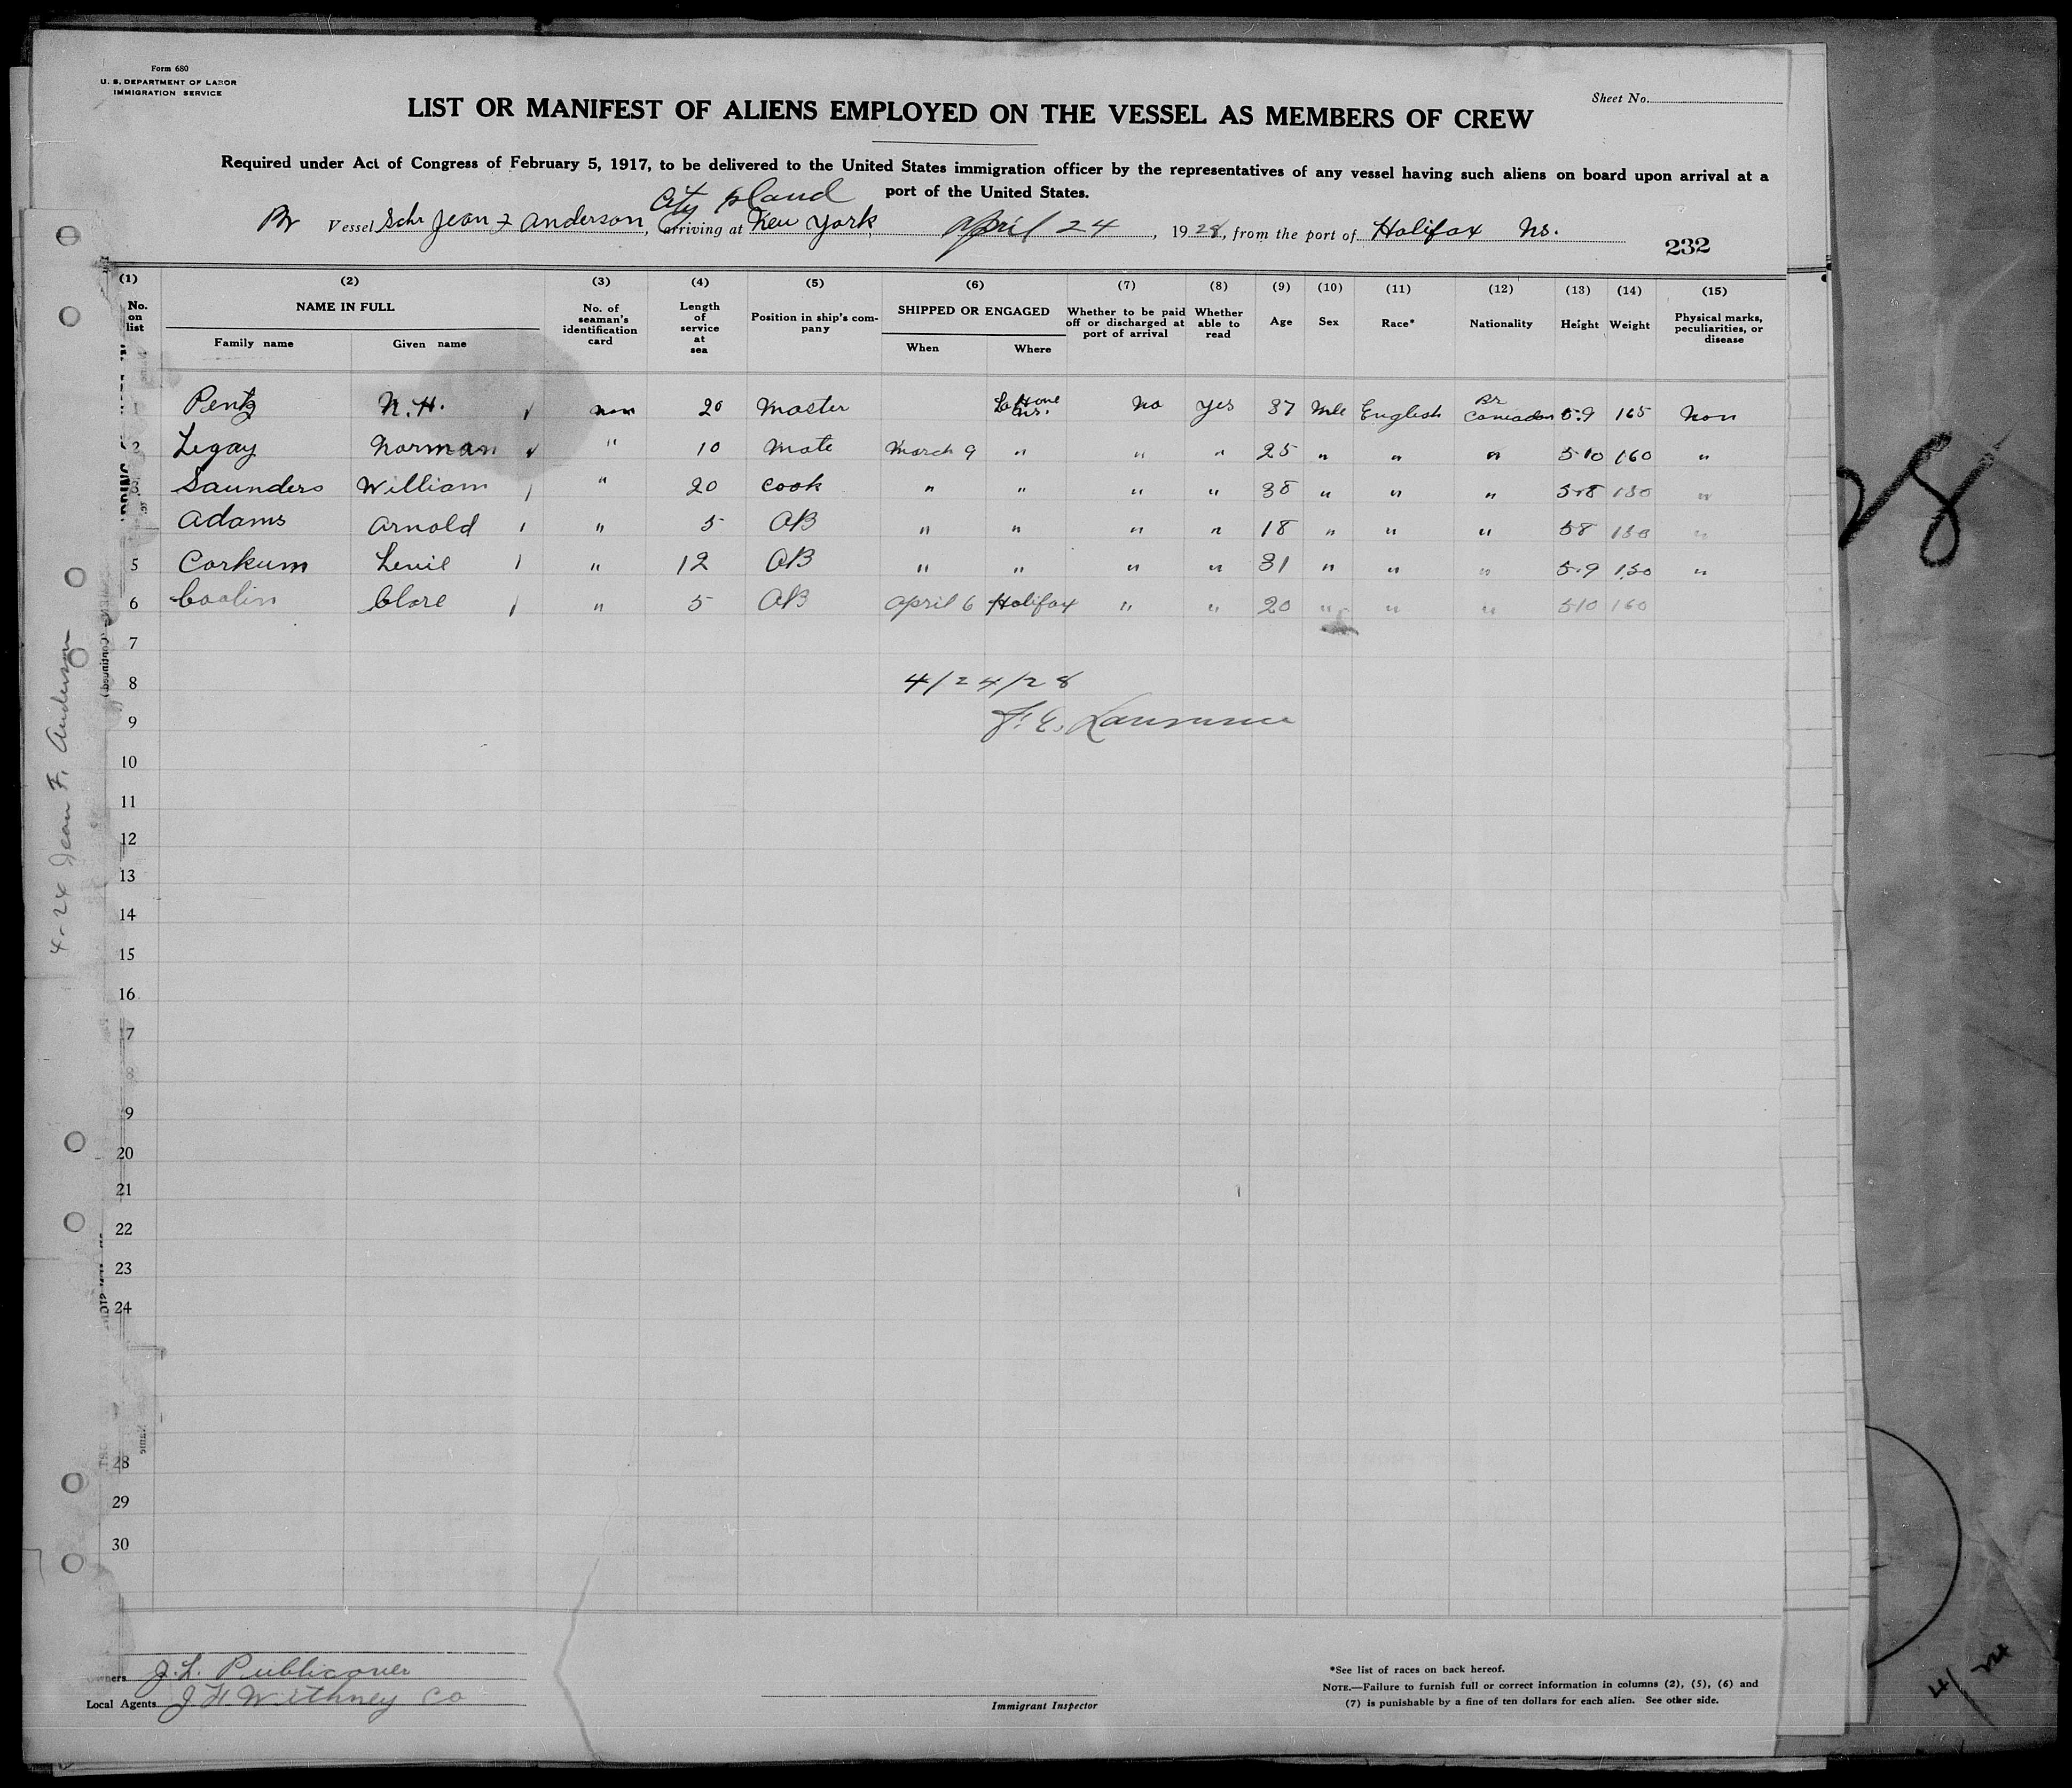 Form 680
U. S. DEPARTMENT OF LABOR
IMMIGRATION SERVICE
Sheet No.
LIST OR MANIFEST OF ALIENS EMPLOYED ON THE VESSEL AS MEMBERS OF CREW
Required under Act of Congress of February 5, 1917, to be delivered to the United States immigration officer by the representatives of any vessel having such aliens on board upon arrival at a
port of the United States.
City Island
Br Vessel Schr Jean F Anderson, arriving at New York April 24, 1928, from the port of Halifax Ns.
232
(1) (2) (3) (4) (5) (6) (7) (8) (9) (10) (11) (12) (13) (14) (15)
No. on list NAME IN FULL Family name Given name No. of seaman's identification card Length of service at sea Position in ship's company SHIPPED OR ENGAGED When Where Whether to be paid off or discharged at port of arrival Whether able to read Age Sex Race* Nationality Height Weight Physical marks, peculiarities, or disease
Pentz N.H. non 20 Master LaHave Ns. No yes 37 Mle English Br Canadan 5.9 165 Non
2 Legay Norman " 10 Mate March 9 " " " 25 " " " 5 10 160 "
3 Saunders William " 20 Cook " " " " 38 " " " 5.8 "
Adams Arnold " 5 AB " " " " 18 " " " 5 8 "
5 Corkum " 12 AB " " " " 31 " " " 5.9 150 "
6 " 5 AB April 6 Halifax " " 20 " " " 5 10 160
7
8
4/24/28
9
J. E. Lawrence
10
11
12
13
14
15
16
7
8
9
20
21
22
23
24
28
29
30
Owners J. L. Publicover
Local Agents J H Withney Co
Immigrant Inspector
*See list of races on back hereof.
NOTE.—Failure to furnish full or correct information in columns (2), (5), (6) and
(7) is punishable by a fine of ten dollars for each alien. See other side.
4-24 Jean F. Anderson
28
4/24